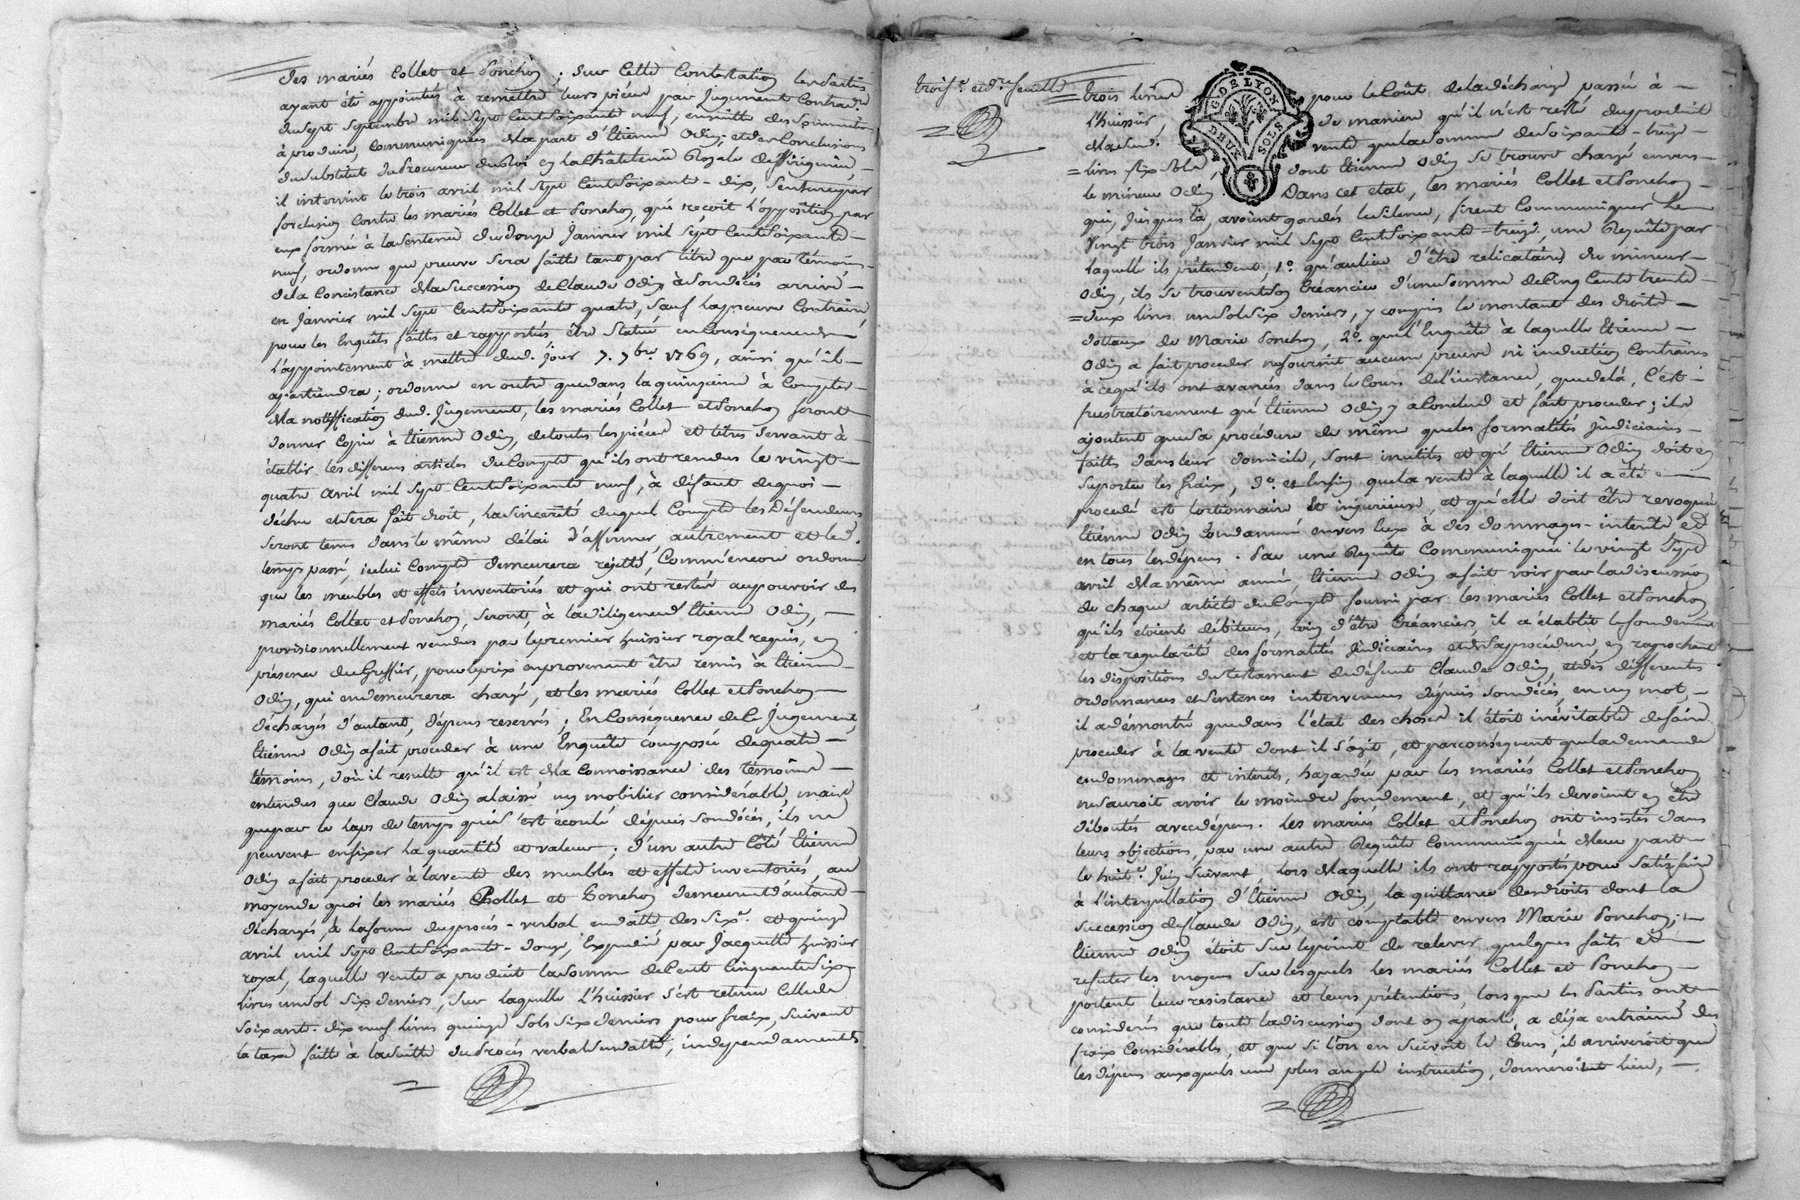 des mariés Collet et Ponchon ; sur cette Contestation les Parties
ayant été appointées à remettre leurs pièces par Jugement Contrad.re
du sept Septembre mil sept Cent soixante neuf, ensuitte des Sommations
à produire, Communiquées de la part d'Etienne Odin ; et des Conclusions
du substitut du Procureur du Roi en la Châtelenie Royale de
il intervint le trois avril mil sept Cent soixante-dix, Sentence par
forclusion Contre les mariés Collet et Ponchon, qui reçoit l'opposition par
eux formée à la Sentence du douze Janvier mil sept Cent soixante
neuf, ordonne que preuve sera faitte tant par titre que par témoins
de la Consistance de la succession de Claude Odin à son décès arrivé
en Janvier mil sept Cent soixante quatre, sauf la preuve Contraire
pour les Enquêtes faittes et rapportées être statué en Conséquence de
l'appointement à mettre dud. jour 7. 7bre 1769, ainsi qu'il
apartiendra ; ordonne en outre que dans la quinzaine à Compter
de la notiffication dud. Jugement, les mariés Collet et Ponchon seront
donner Copie à Etienne Odin, de toutes les pièces et titres servant à
établir les differens articles du Compte qu'ils ont rendus le vingt
quatre avril mil sept Cent soixante neuf, à défaut de quoi
déchu et sera fait droit, la sincérité duquel Compte les Défendeurs
seront tenus dans le même délai d'affirmer autrement et led.
temps passé, icelui Compte demeurera rejetté, Comm'encore ordonne
que les meubles et effets inventoriés et qui ont restés au pouvoir des
mariés Collet et Ponchon, seront, à la diligence d'Etienne Odin,
provisionnellement vendus par le premier huissier royal requis, en
présence du Greffier, pour le prix en provenant être remis à Etienne
Odin, qui en demeurera chargé, et les mariés Collet et Ponchon
déchargés d'autant, dépens reservés ; En Conséquence de Ce Jugement,
Etienne Odin a fait proceder à une Enquête composée de quatre
témoins, d'où il resulte qu'il est de la Connoissance des témoins
entendus que Claude Odin a laissé un mobilier considérable mais
que par le laps de temps qui s'est écoulé dépuis son décès, ils ne
peuvent en fixer la quantité et valeur ; d'un autre Côté Etienne
Odin a fait proceder à la vente des meubles et effets inventoriés, au
moyen de quoi les mariés Chollet et Ponchon demeurent d'autant
déchargés, à la forme du procès-verbal en datte des six.e et quinze
avril mil sept Cent soixante-douze, Expedié par Jacquette huissier
royal, laquelle vente a produit la somme de Cent Cinquante six
livres un sol six deniers, sur laquelle l'huissier s'est retenu Celle de
soixante-dix neuf livres quinze sols six deniers pour fraix, suivant
la taxe faitte à la suitte du Procès verbal sus datté, independamment
trois.e et d.re feuille
trois livres pour le Coût de la décharge passée à
l'huissier, de maniere qu'il n'est resté du produit
de lad. vente que la somme de soixante-treize
livres six sols, dont Etienne Odin se trouve chargé envers
le mineur Odin. Dans cet état, les mariés Collet et Ponchon
G. DE LYON
DEUX SOLS
qui, jusques là, avoient gardés le silence, firent Communiquer le
vingt trois Janvier mil sept Cent soixante-treize une Requête par
laquelle ils prétendent, 1.° qu'au lieu d'être relicataires du mineur
Odin, ils se trouvent son Créancier d'une somme de Cinq Cent trente
deux livres un sol six deniers, y compris le montant des droits
dottaux de Marie Ponchon, 2.° que l'Enquête à laquelle Etienne
Odin a fait proceder ne fournit aucune preuve ni induction Contraires
à ce qu'ils ont avancés dans le Cours de l'instance, que de là, c'est
frustratoirement qu'Etienne Odin y a Conclud et fait proceder ; ils
ajoutent que sa procédure de même que les formalités Judiciaires
faittes dans leur domicile, sont inutiles et qu'Etienne Odin doit en
supporter les fraix, 3.° et enfin que la vente à laquelle il a été
procedé est tortionnaire et injurieuse, et qu'elle doit être revoquée
Etienne Odin Condamné envers eux à des dommages-interêts et
en tous les dépens. Par une Requête Communiquée le vingt sept
avril de la même année, Etienne Odin a fait voir par la discussion
de chaque article du Compte fourni par les mariés Collet et Ponchon
qu'ils etoient débiteurs, loin d'être Créanciers, il a établit le fondement
et la regularité des formalités Judiciaires et de sa procédure en raprochant
les dispositions du testament du défunt Claude Odin, et des différentes
ordonnances et sentences intervenues dépuis son décès, en un mot,
il a démontré que dans l'état des choses il étoit inévitable de faire
proceder à la vente dont il s'agit, et par conséquent que la demande
en dommages et interêts, hazardée par les mariés Collet et Ponchon
ne sauroit avoir le moindre fondement, et qu'ils devoient en être
déboutés avec dépens. Les mariés Collet et Ponchon ont insistés dans
leurs objections, par une autre Requête Communiquée de leur part
le huit.e Juin suivant, lors de laquelle ils ont rapportés pour satisfaire
à l'interpellation d'Etienne Odin, la quittance des droits dont la
succession de Claude Odin, est comptable envers Marie Ponchon ;
Etienne Odin étoit sur le point de relever quelques faits et
refuter les moyens sur lesquels les mariés Collet et Ponchon
portent leur resistance et leurs prétentions, lorsque les Parties ont
considerés que toute la discussion dont on a parlé, a déja entrainé des
fraix Considérables, et que si l'on en suivoit le Cours, il arriveroit que
les dépens auxquels une plus ample instruction, donneroient lieu,